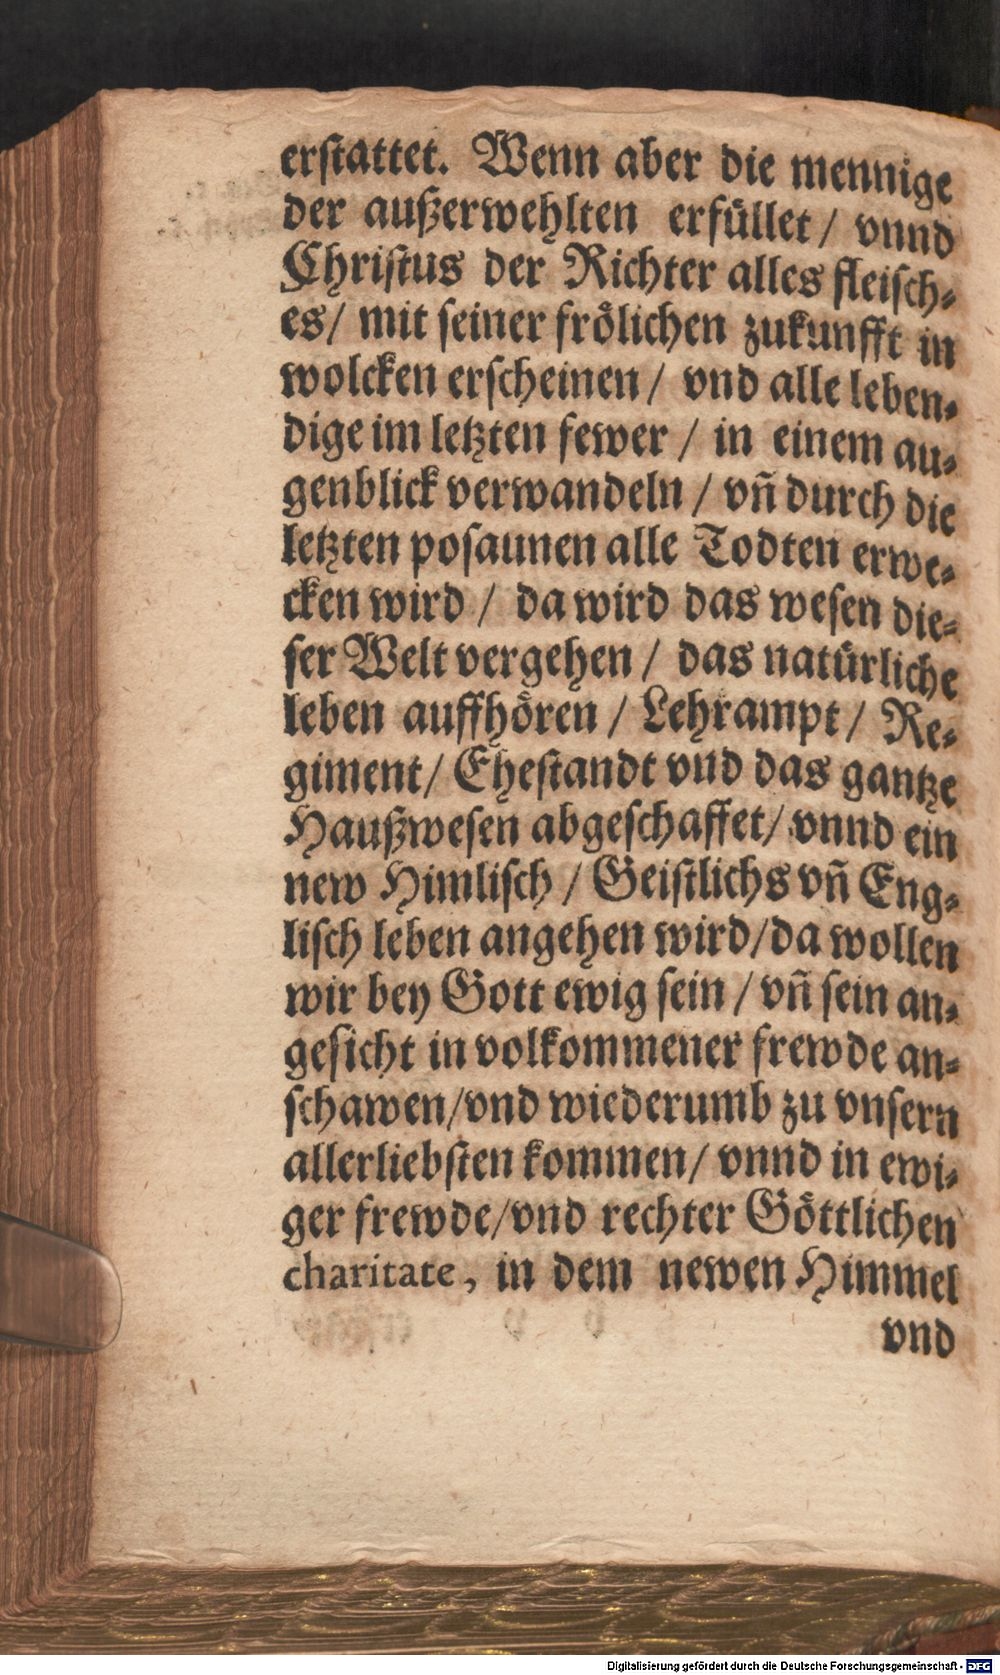 erſtattet. Wenn aber die mennige
der außerwehlten erfüllet / vnnd
Chriſtus der Richter alles fleiſch⸗
es / mit ſeiner frölichen zukunfft in
wolcken erſcheinen / vnd alle leben⸗
dige im letzten fewer / in einem au⸗
genblick verwandeln / vñ durch die
letzten poſaunen alle Todten erwe⸗
cken wird / da wird das weſen die⸗
ſer Welt vergehen / das natürliche
leben auffhören / Lehrampt / Re⸗
giment / Eheſtandt vnd das gantze
Haußweſen abgeſchaffet / vnnd ein
new Himliſch / Geiſtlichs vñ Eng⸗
liſch leben angehen wird / da wollen
wir bey Gott ewig ſein / vñ ſein an⸗
geſicht in volkommener frewde an⸗
ſchawen / vnd wiederumb zu vnſern
allerliebſten kommen / vnnd in ewi⸗
ger frewde / vnd rechter Göttlichen
charitate, in dem newen Himmel
vnd
Digitalisierung gefördert durch die Deutsche Forschungsgemeinschaft - DFG